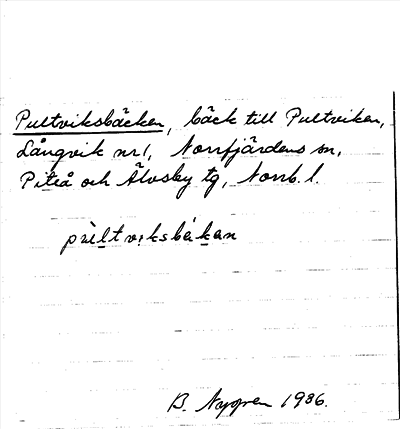 Pultviksbäcken, bäck till Pultviken,
Långvik nr 1, Norrfjärdens sn,
Piteå och Älvsby tg, Norrb. l.
pùltviksbäkan
B. Nygren 1986.